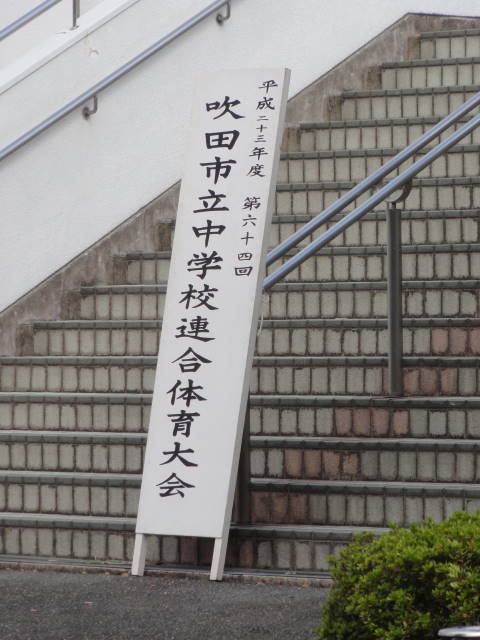 平成二十三年度 第六十四回
吹田市立中学校連合体育大会